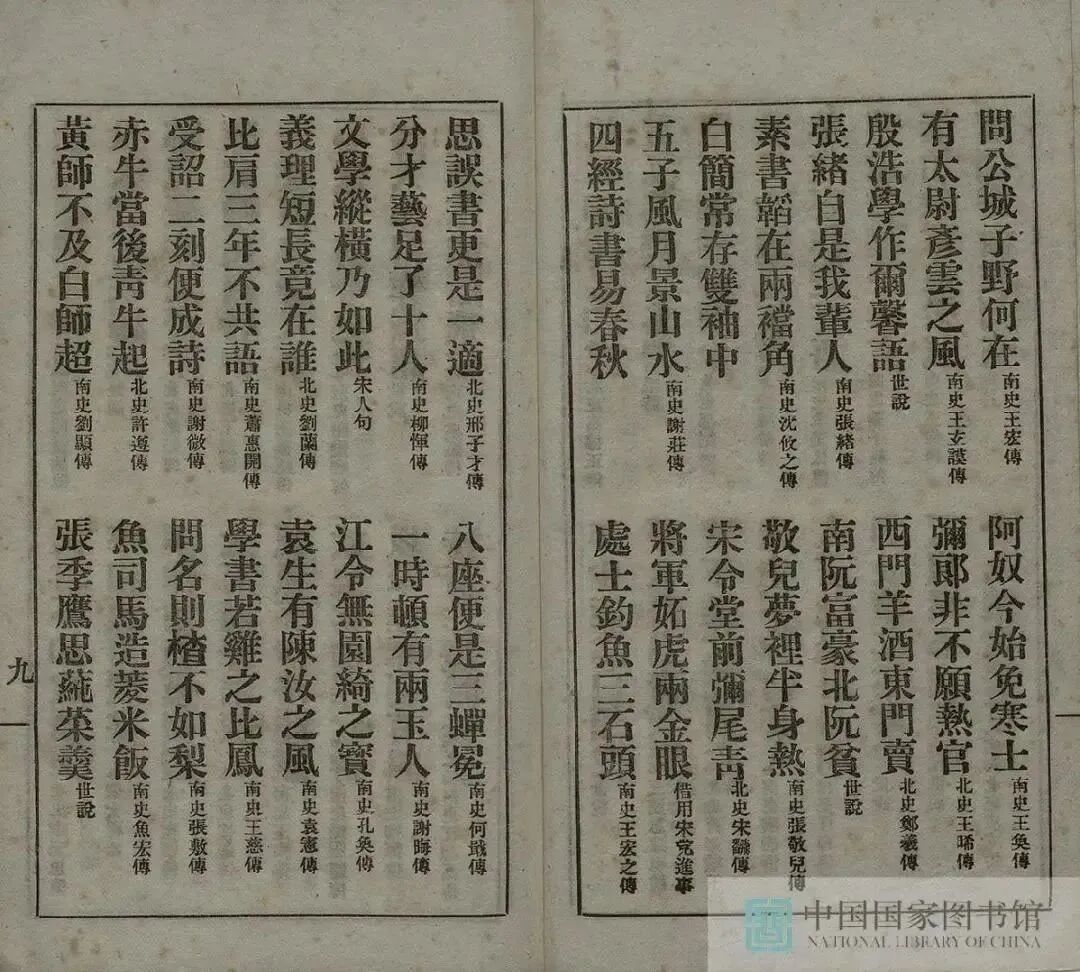 問公城子野何在 南史王宏傳 阿奴今始免寒士 南史王奐傳
有太尉彥雲之風 南史王玄謨傳 彌郎非不願熱官 北史王晞傳
殷浩學作爾馨語 世說 西門羊酒東門賣 北史鄭羲傳
張緒自是我輩人 南史張緒傳 南阮富豪北阮貧 世說
素書韜在兩襠角 南史沈攸之傳 敬兒夢裡半身熱 南史張敬兒傳
白簡常存雙袖中 宋令堂前彌尾青 北史宋翻傳
五子風月景山水 南史謝莊傳 將軍妬虎兩金眼 借用宋党進事
四經詩書易春秋 處士釣魚三石頭 南史王宏之傳
思誤書更是一適 北史邢子才傳 八座便是三蟬冕 南史何戢傳
分才藝足了十人 南史柳惲傳 一時頓有兩玉人 南史謝晦傳
文學縱橫乃如此 宋人句 江令無園綺之實 南史孔奐傳
義理短長竟在誰 北史劉蘭傳 袁生有陳汝之風 南史袁憲傳
比肩三年不共語 南史蕭惠開傳 學書若雞之比鳳 南史王慈傳
受詔二刻便成詩 南史謝微傳 問名則楂不如梨 南史張敷傳
赤牛當後靑牛起 北史許遵傳 魚司馬造菱米飯 南史魚宏傳
黃師不及白師超 南史劉顯傳 張季鷹思蒓菜羹 世說
九
中国国家图书馆
NATIONAL LIBRARY OF CHINA